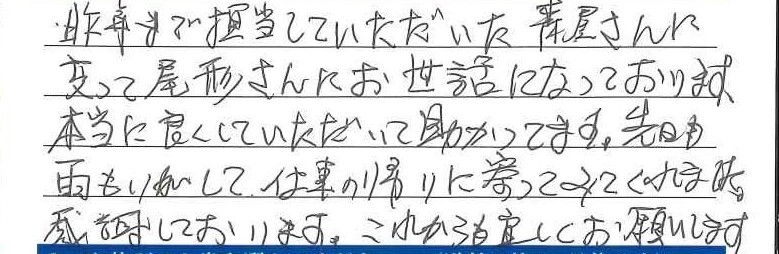 昨年まで担当していただいた青屋さんに
変って尾形さんにお世話になっております
本当に良くしていただいて助かってます。先日も
雨もりがして仕事の帰りに寄ってみてくれました。
感謝しております。これからも宜しくお願いします